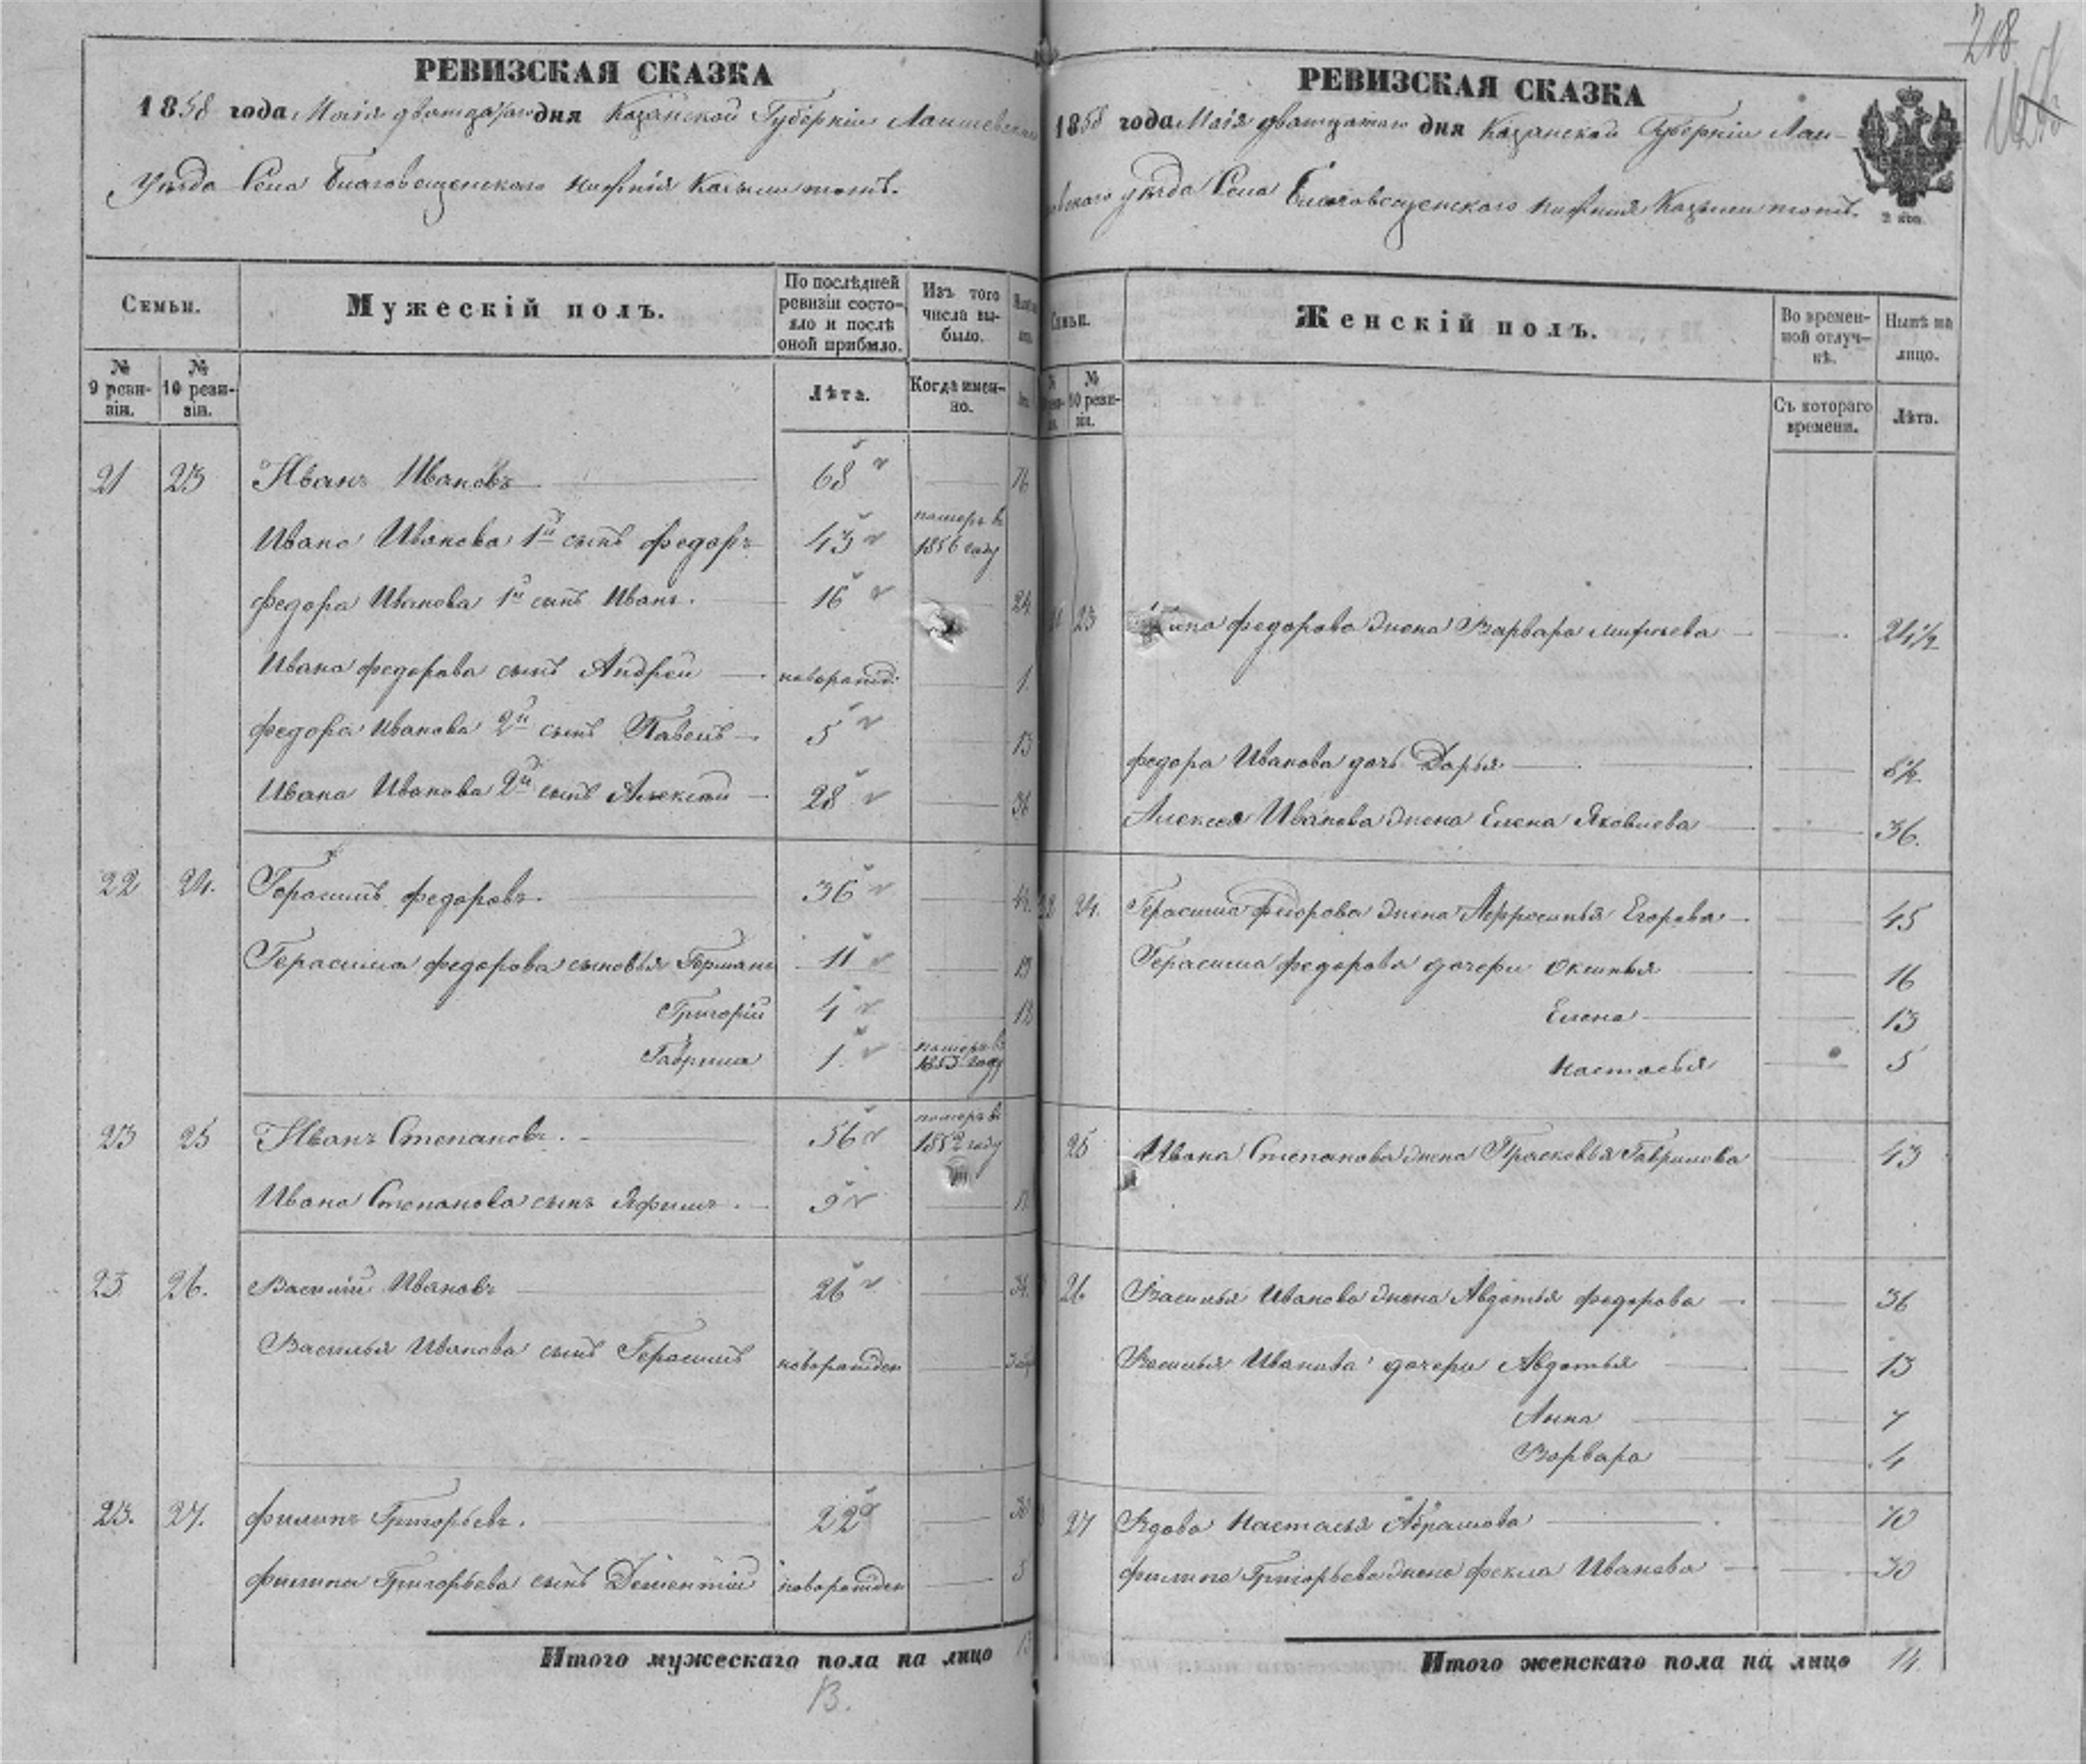 РЕВИЗСКАЯ СКАЗКА
1858 года Маія двадцатаго дня Казанской Губерніи Лаишевскаго
Уѣзда Села Благовещенского нижнія Козыли тожъ.
Семьи.
Мужескій полъ.
По послѣдней ревизіи состояло и послѣ оной прибыло.
Изъ того числа выбыло.
№ 9 ревизіи.
№ 10 ревизіи.
Лѣта.
Когда именно.
21 23 Иванъ Ивановъ 68 76
Ивана Иванова 1й сынъ федоръ 43 померъ в 1856 году
федора Иванова 1й сынъ Иванъ. 16 24
Ивана федорова сынъ Андрей 1.
федора Иванова 2й сынъ Павелъ 5 13
Ивана Иванова 2й сынъ Алексей 28 36
22 24. Герасимъ федоровъ. 36 44
Герасима федорова сыновья Германъ 11 19
Григорій 4 12
Гаврила 1. померъ в 1853 году
23 25 Иванъ Степановъ. 56 померъ в 1852 году
Ивана Степанова сынъ Яфимъ. 9 17
23 26. Василій Ивановъ 26 34
Василья Иванова сынъ Герасимъ новорожден
23. 27. филипъ Григорьевъ. 22 30
филипа Григорьева сынъ Дементій новорожден 5
Итого мужескаго пола на лицо
13.
218
РЕВИЗСКАЯ СКАЗКА
1858 года Маія двадцатаго дня Казанской Губерніи Лаи-
шевского уѣзда Села Благовещенского нижнія Козыли тожъ.
2 коп.
Семьи.
Женскій полъ.
Во временной отлучкѣ.
Нынѣ на лицо.
№ 10 ревизіи.
Съ котораго времени.
Лѣта.
23 Ивана федорова жена Варвара 24½
федора Иванова дочь Дарья 8½
Алексея Иванова жена Елена Яковлева 36.
22 24. Герасима Федорова жена Афросинья Егорова 45
Герасима федорова дочери Оксинья 16
Елена 13
Настасья 5
25 Ивана Степанова жена Прасковья Гаврилова 43
26 Василья Иванова жена Авдотья федорова 36
Василья Иванова дочери Авдотья 13
Анна 7
Варвара 4
27 Вдова Настасья Абрамова 70
филипа Григорьева жена фекла Иванова 30
Итого женскаго пола на лицо 14.